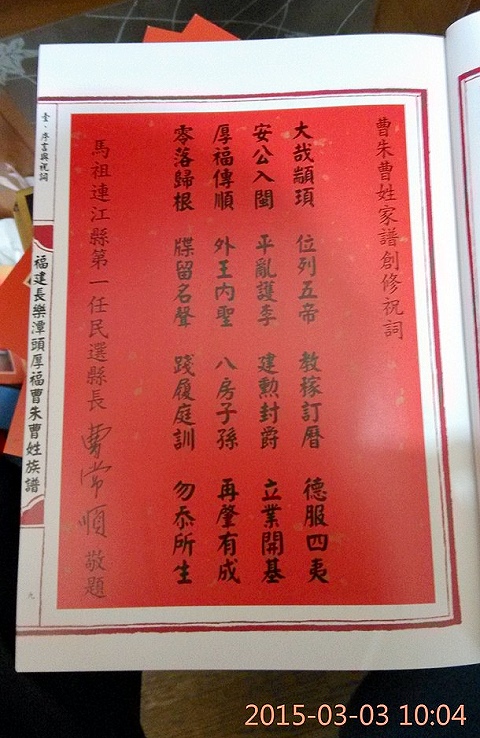 曹朱曹姓家譜創修祝詞
大哉顓頊 位列五帝 教稼訂曆 德服四夷
安公入閩 平亂護李 建勳封爵 立業開基
厚福傳順 外王內聖 八房子孫 再肇有成
零落歸根 牒留名聲 踐履庭訓 勿忝所生
馬祖連江縣第一任民選縣長 曹常順 敬題
壹、序言與祝詞
福建長樂潭頭厚福曹朱曹姓族譜
九
2015-03-03 10:04